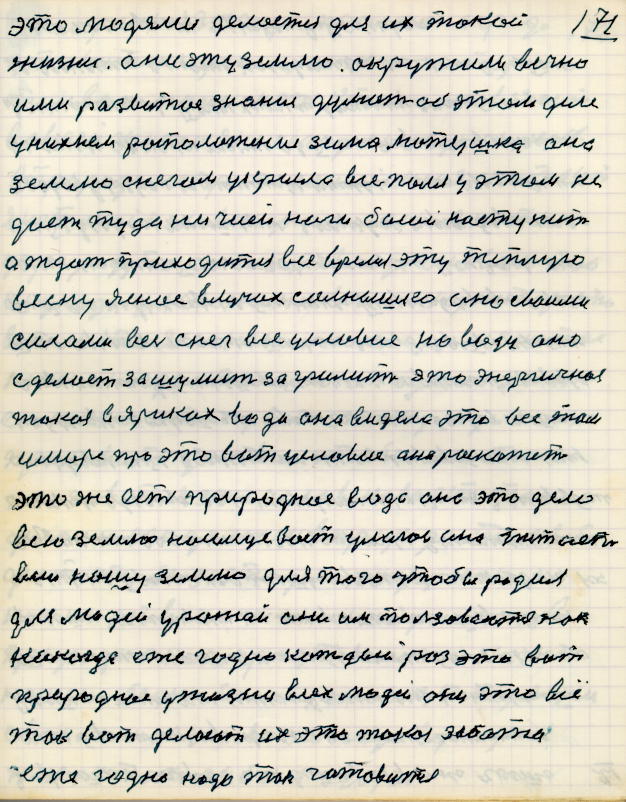 это людями делается для их такой 171
жизни. они эту землю. окружили вечно
ими развитое знания думают об этом деле
у них нем росположение зима мотушка она
землю снегом укрыла все поля у этом не
дает туда ни чией ноги босой наступить
а ждать приходится все время эту теплую
весну ясное влучах солнышко оно своими
силами вех снег все условие на воду оно
сделает зашумит загримит это энергичная
такая в яриках вода она видела это все там
у море про это вот условие она роскажет
это же есть природное вода она это дело
всю землю насищевает улагой она питает
всю нашу землю для того чтобы родил
для людей урожай они им ползоватся как
никогда еже годно каждый роз это вот
природное у жизни всех людей они это всё
так вот делают их это такая забота
еже годно надо так готовится